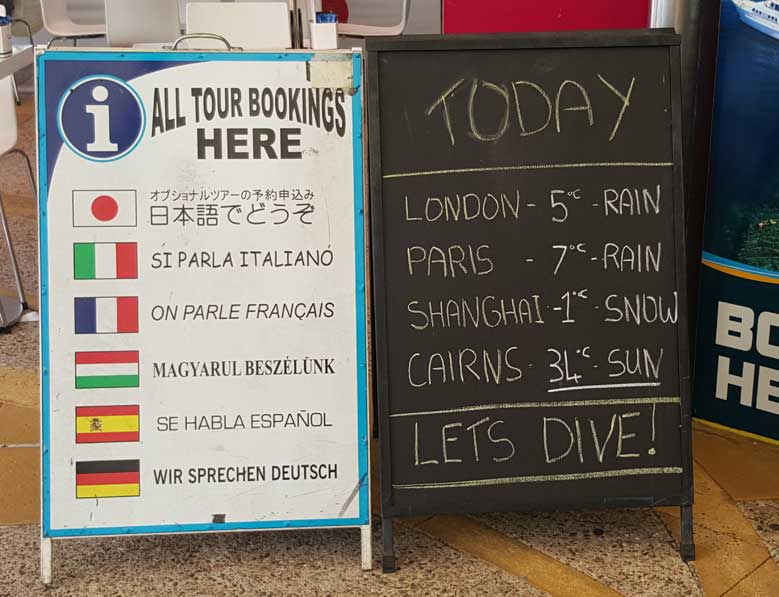 i
ALL TOUR BOOKINGS
HERE
オプショナルツアーの予約申込み
日本語でどうぞ
SI PARLA ITALIANÓ
ON PARLE FRANÇAIS
MAGYARUL BESZÉLÜNK
SE HABLA ESPAÑOL
WIR SPRECHEN DEUTSCH
TODAY
LONDON - 5°C - RAIN
PARIS - 7°C - RAIN
SHANGHAI -1°C - SNOW
CAIRNS - 34°C - SUN
LETS DIVE!